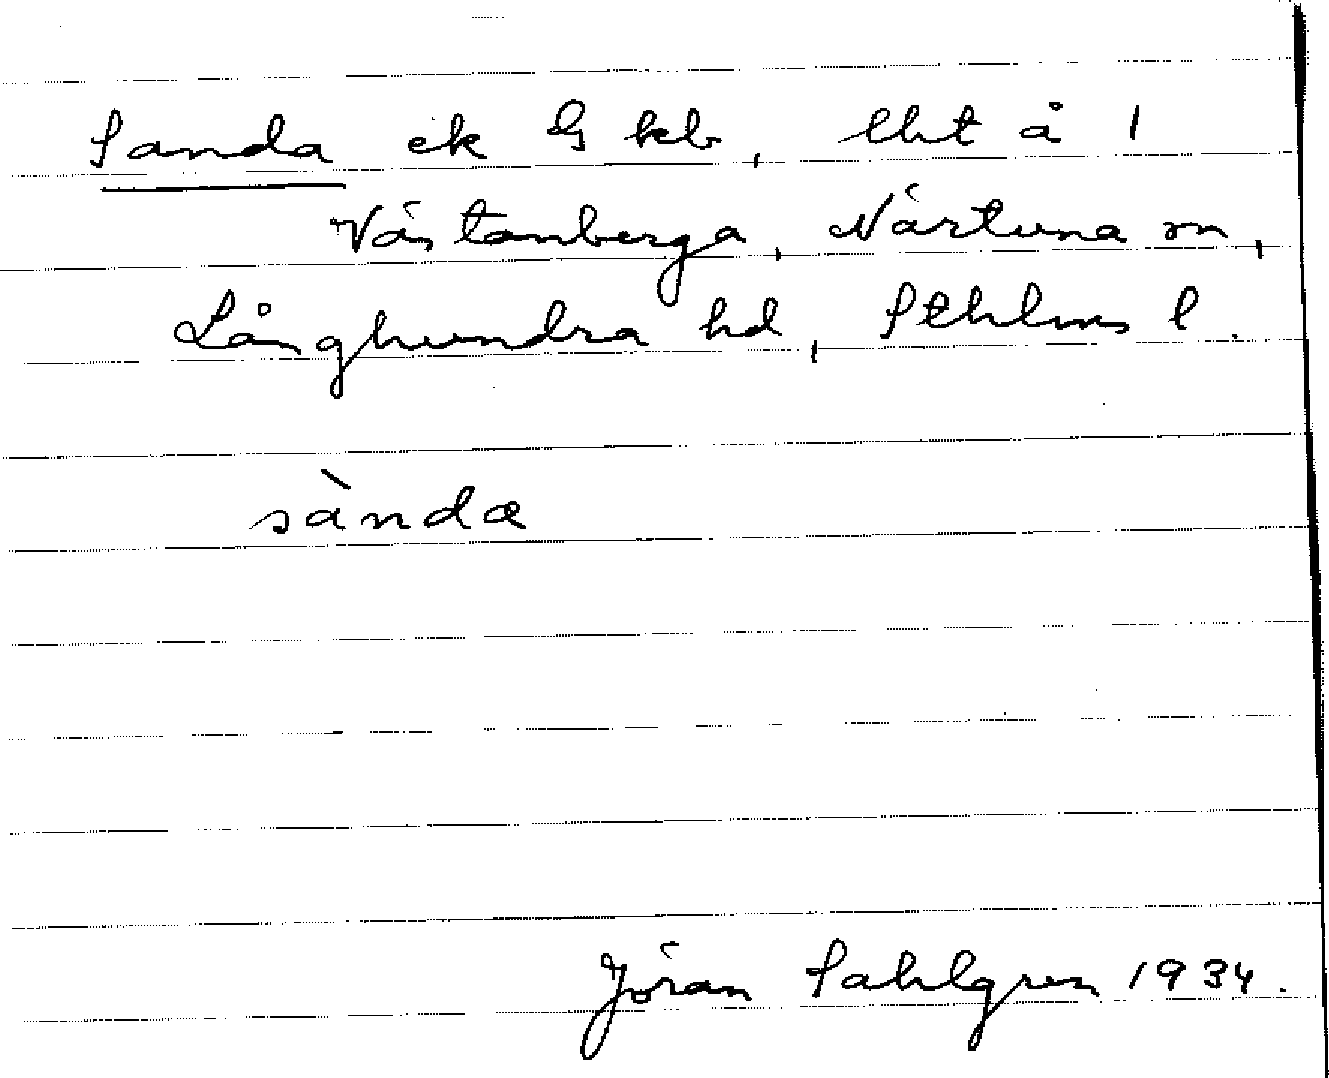 Sanda ek G kb, lht å 1
Västanberga, Närtuna sn,
Långhundra hd, Sthlms l.
sànda
Jöran Sahlgren 1934.